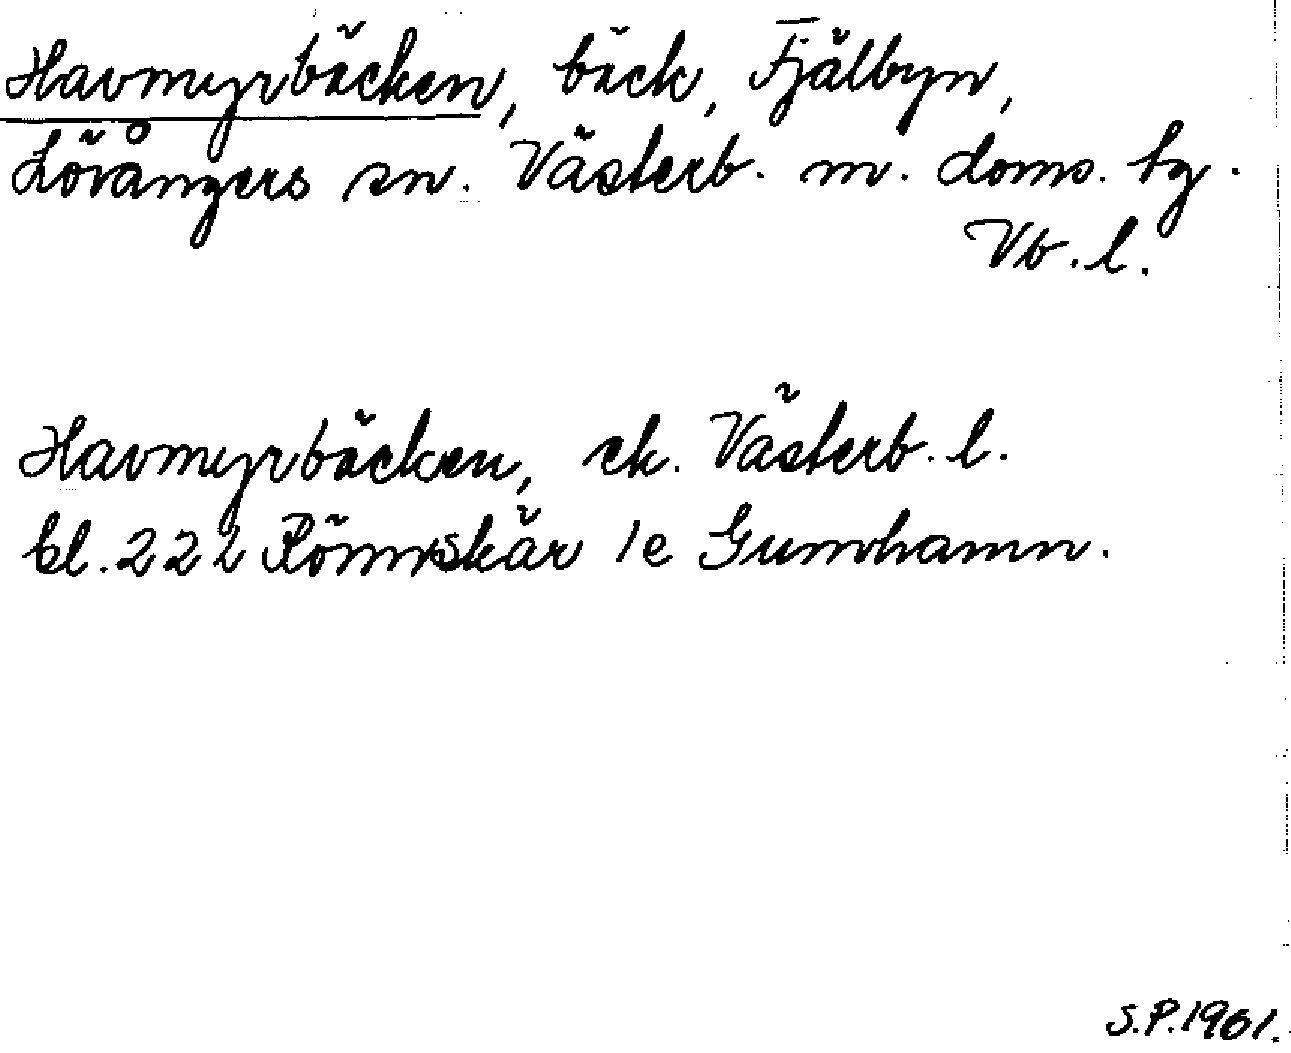 Havmyrbäcken, bäck, Fjälbyn,
Lövångers sn. Västerb. m. doms. tg.
Vb. l.
Havmyrbäcken, ek. Västerb. l.
bl. 222 Rönnskär 1e Gumhamn.
S.P. 1961.